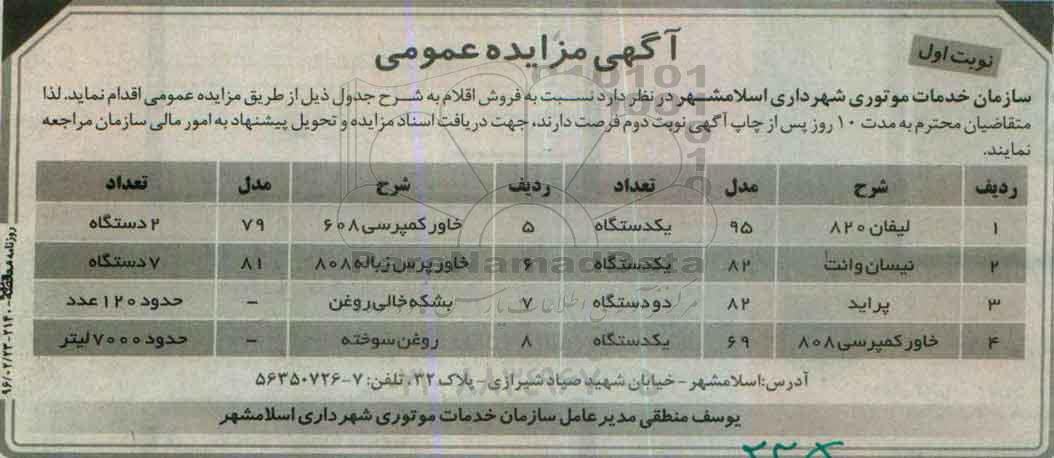 نوبت اول
آگهی مزایده عمومی
سازمان خدمات موتوری شهرداری اسلامشهر در نظر دارد نسبت به فروش اقلام به شرح جدول ذیل از طریق مزایده عمومی اقدام نماید. لذا
متقاضیان محترم به مدت ۱۰ روز پس از چاپ آگهی نوبت دوم فرصت دارند، جهت دریافت اسناد مزایده و تحویل پیشنهاد به امور مالی سازمان مراجعه
نمایند.
ردیف شرح مدل تعداد ردیف شرح مدل تعداد
۱ لیفان ۸۲۰ ۹۵ یکدستگاه ۵ خاور کمپرسی ۶۰۸ ۷۹ ۲ دستگاه
۲ نیسان وانت ۸۲ یکدستگاه ۶ خاور پرس زباله ۸۰۸ ۸۱ ۷ دستگاه
۳ پراید ۸۲ دو دستگاه ۷ بشکه خالی روغن - حدود ۱۲۰ عدد
۴ خاور کمپرسی ۸۰۸ ۶۹ یکدستگاه ۸ روغن سوخته - حدود ۷۰۰۰ لیتر
آدرس: اسلامشهر - خیابان شهید صیاد شیرازی - پلاک ۳۲، تلفن: ۷-۵۶۳۵۰۷۲۶
یوسف منطقی مدیر عامل سازمان خدمات موتوری شهرداری اسلامشهر
روزنامه
۹۶/۰۲/۲۳-۲۱۴۰